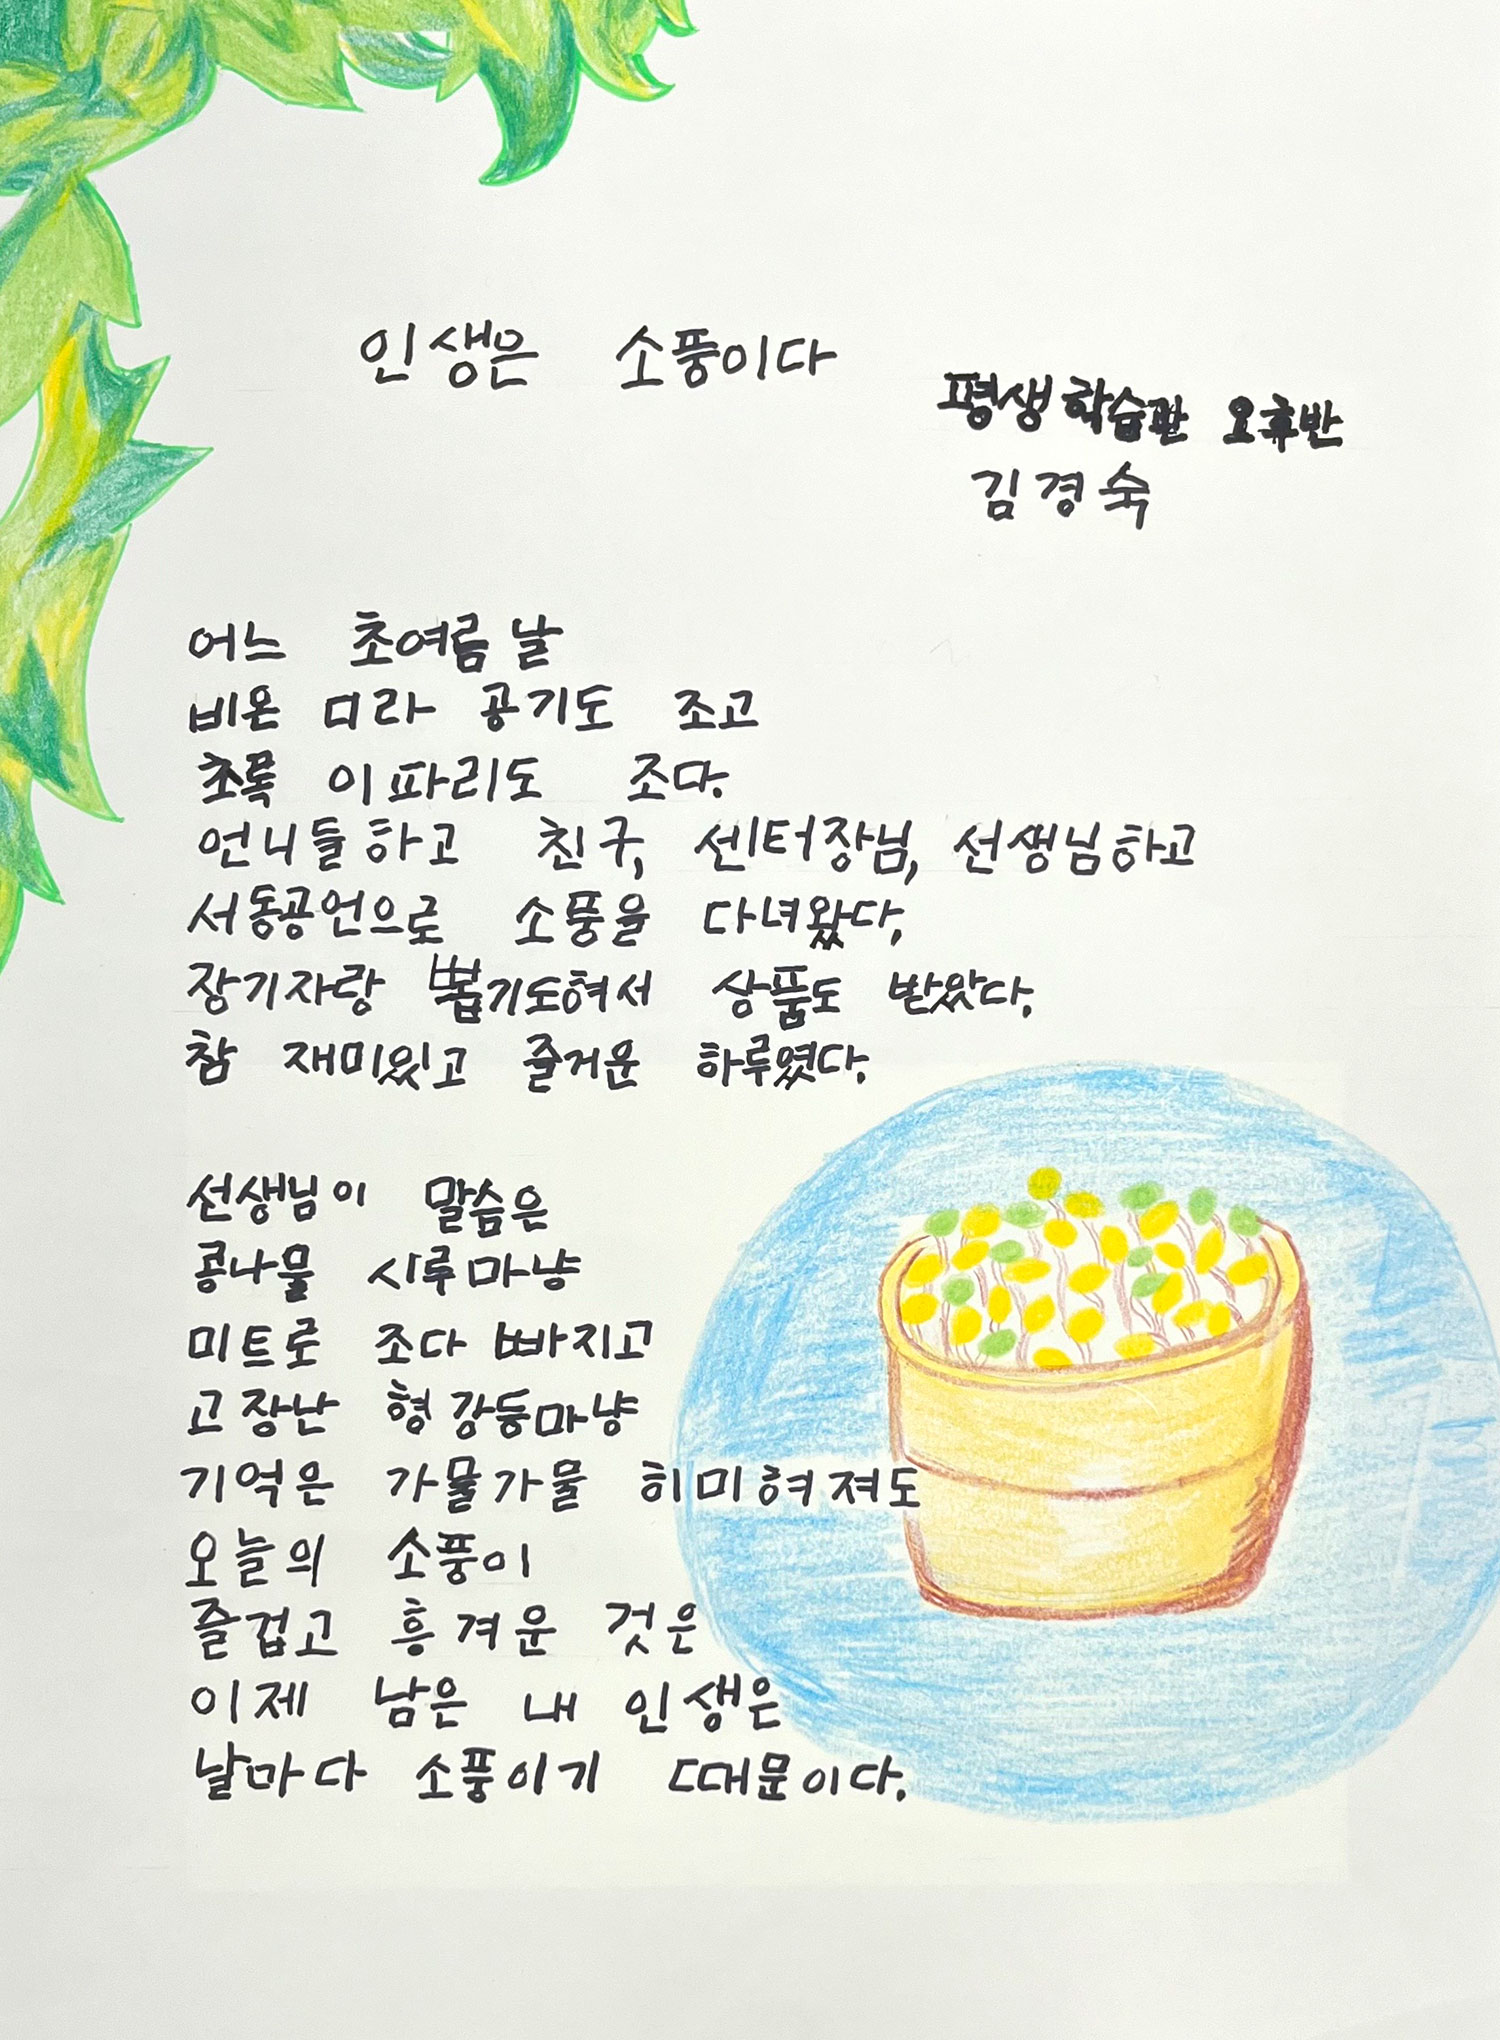 인생은 소풍이다
평생학습관 오후반
김경숙
어느 초여름 날
비온 미라 공기도 조고
초록 이파리도 조다.
언니들하고 친구, 센터장님, 선생님하고
서동공언으로 소풍을 다녀왔다,
장기자랑 뽑기도혀서 상품도 받았다.
참 재미있고 즐거운 하루였다.
선생님이 말슴은
콩나물 시루마냥
미트로 조다 빠지고
고장난 형강등마냥
기억은 가물가물 히미혀져도
오늘의 소풍이
즐겁고 흥겨운 것은
이제 남은 내 인생은
날마다 소풍이기 때문이다.